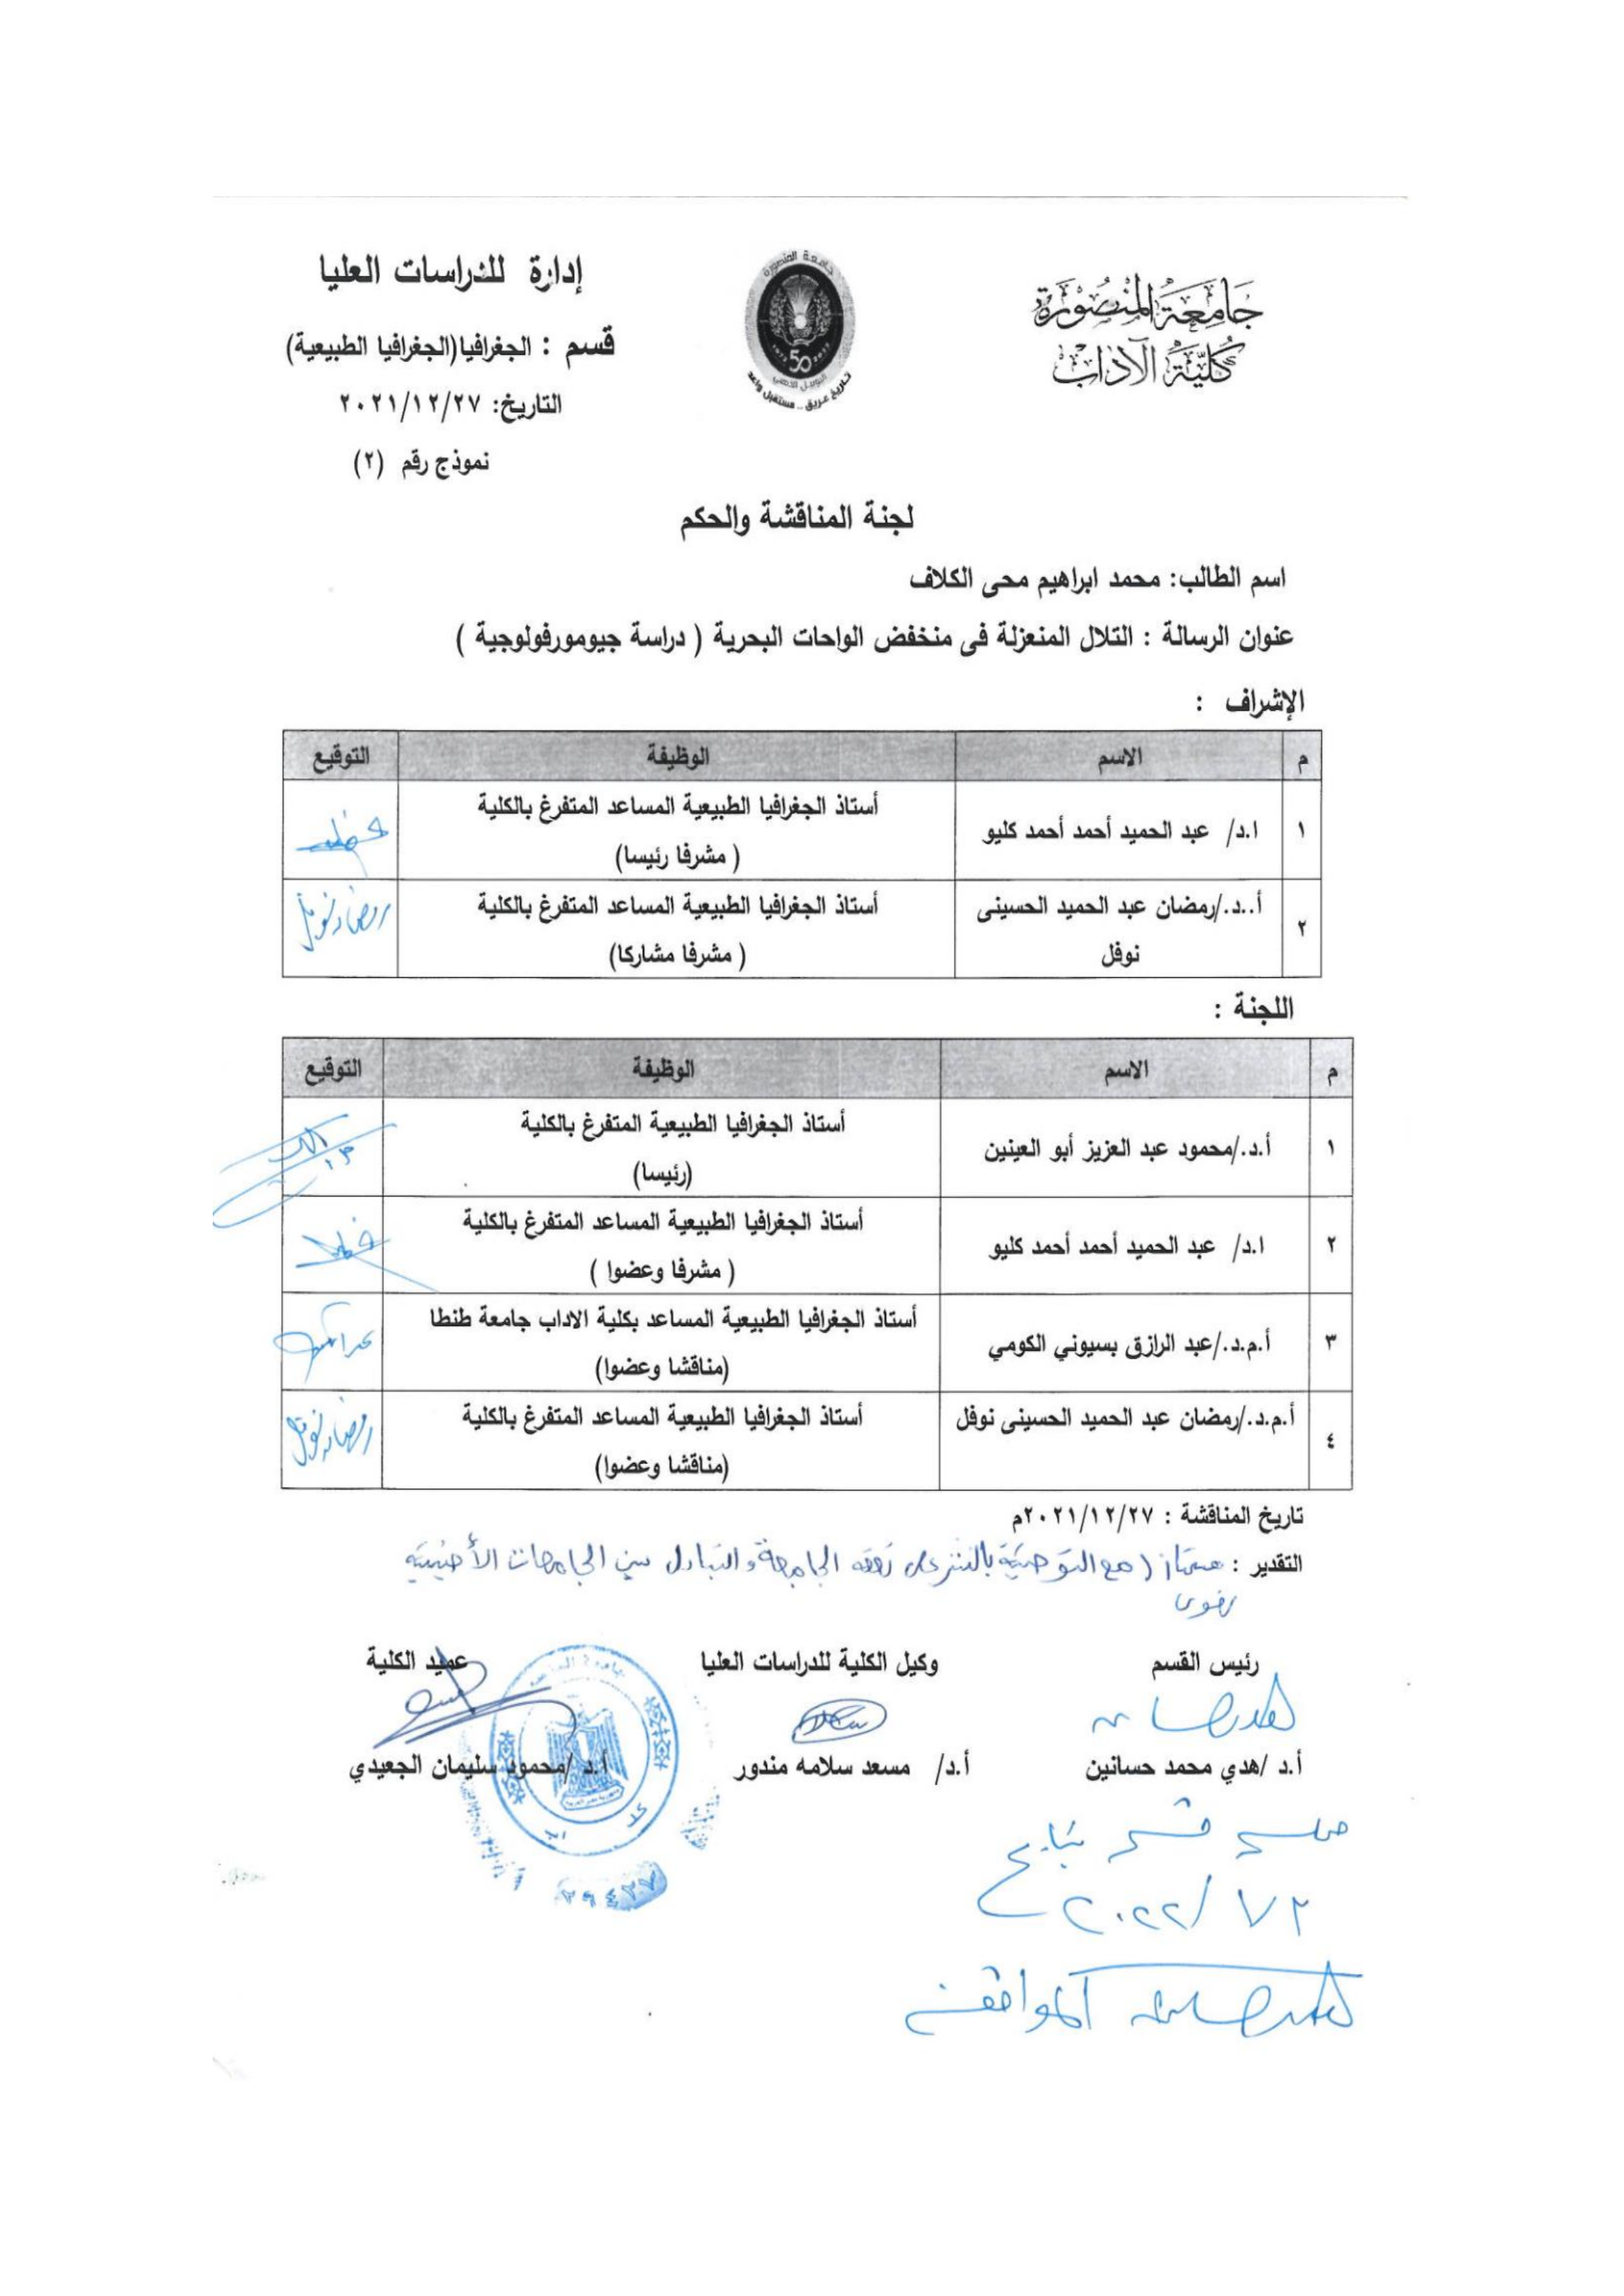 جامعة المنصورة
كلية الآداب
جامعة المنصورة
50
اليوبيل الذهبي
تاريخ عريق .. مستقبل واعد
إدارة للدراسات العليا
قسم : الجغرافيا(الجغرافيا الطبيعية)
التاريخ: ٢٠٢١/١٢/٢٧
نموذج رقم (٢)
لجنة المناقشة والحكم
اسم الطالب: محمد ابراهيم محى الكلاف
عنوان الرسالة : التلال المنعزلة فى منخفض الواحات البحرية ( دراسة جيومورفولوجية )
الإشراف :
م الاسم الوظيفة التوقيع
١ ا.د/ عبد الحميد أحمد أحمد كليو أستاذ الجغرافيا الطبيعية المساعد المتفرغ بالكلية
( مشرفا رئيسا)
٢ أ..د./رمضان عبد الحميد الحسينى أستاذ الجغرافيا الطبيعية المساعد المتفرغ بالكلية رمضان نوفل
نوفل ( مشرفا مشاركا)
اللجنة :
م الاسم الوظيفة التوقيع
١ أ.د./محمود عبد العزيز أبو العينين أستاذ الجغرافيا الطبيعية المتفرغ بالكلية
(رئيسا)
٢ ا.د/ عبد الحميد أحمد أحمد كليو أستاذ الجغرافيا الطبيعية المساعد المتفرغ بالكلية
( مشرفا وعضوا )
٣ أ.م.د./عبد الرازق بسيوني الكومي أستاذ الجغرافيا الطبيعية المساعد بكلية الاداب جامعة طنطا
(مناقشا وعضوا)
٤ أ.م.د./رمضان عبد الحميد الحسينى نوفل أستاذ الجغرافيا الطبيعية المساعد المتفرغ بالكلية رمضان نوفل
(مناقشا وعضوا)
تاريخ المناقشة : ٢٠٢١/١٢/٢٧م
التقدير : ممتاز ( مع التوصية بالنشر على نفقة الجامعة والتبادل بين الجامعات الأجنبية
رئيس القسم وكيل الكلية للدراسات العليا عميد الكلية
أ.د /هدي محمد حسانين أ.د/ مسعد سلامه مندور أ.د /محمود سليمان الجعيدي
مجلس قسم بتاريخ
٢٠٢٢/
الموافقة